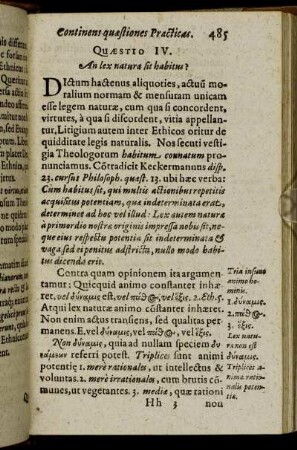 Continens quæstiones Practicas. 485
QUÆSTIO IV.
An lex naturæ sit habitus?
DIctum hactenus aliquoties, actuũ mo-
ralium normam & mensuram unicam
esse legem naturæ, cum qua si concordent,
virtutes, à qua si discordent, vitia appellan-
tur. Litigium autem inter Ethicos oritur de
quidditate legis naturalis. Nos secuti vesti-
gia Theologorum habitum connatum pro-
nunciamus. Cõtradicit Keckermannus disp.
23. cursus Philosoph. quæst. 13. ubi hæc verba:
Cum habitus sit, qui multis actionibus repetitis
acquisitus potentiam, quæ indeterminata erat,
determinet ad hoc vel illud: Lex autem naturæ
à primordio nostræ originis impressa nobis sit, ne-
que eius respectu potentia sit indeterminata &
vaga, sed ei penitus adstricta, nullo modo habi-
tus dicenda erit.
Contra quam opinionem ita argumen-
tamur: Quicquid animo constanter inhæ-
ret, vel δύναμις est, vel πάθ@, vel ἕξις. 2. Eth. 5.
Atqui lex naturæ animo cõstanter inhæret.
Non enim actus transiens, sed qualitas per-
manens. E. vel δύναμις, vel πάθ@, vel ἕξις.
Non δύναμις, quia ad nullam speciem δυ-
νάμεων referri potest. Triplices sunt animi
potentiæ 1. merè rationales, ut intellectus &
voluntas. 2. merè irrationales, cum brutis cõ-
munes, ut vegetantes. 3. mediæ, quæ rationi
Hh 3 non
Tria insunt
animo ho-
minis.
1. δύναμις.
2. πάθ@.
3. ἕξις.
Lex natu-
ræ non est
δύναμις.
Triplices a-
nimæ ratio-
nalis poten-
tiæ.